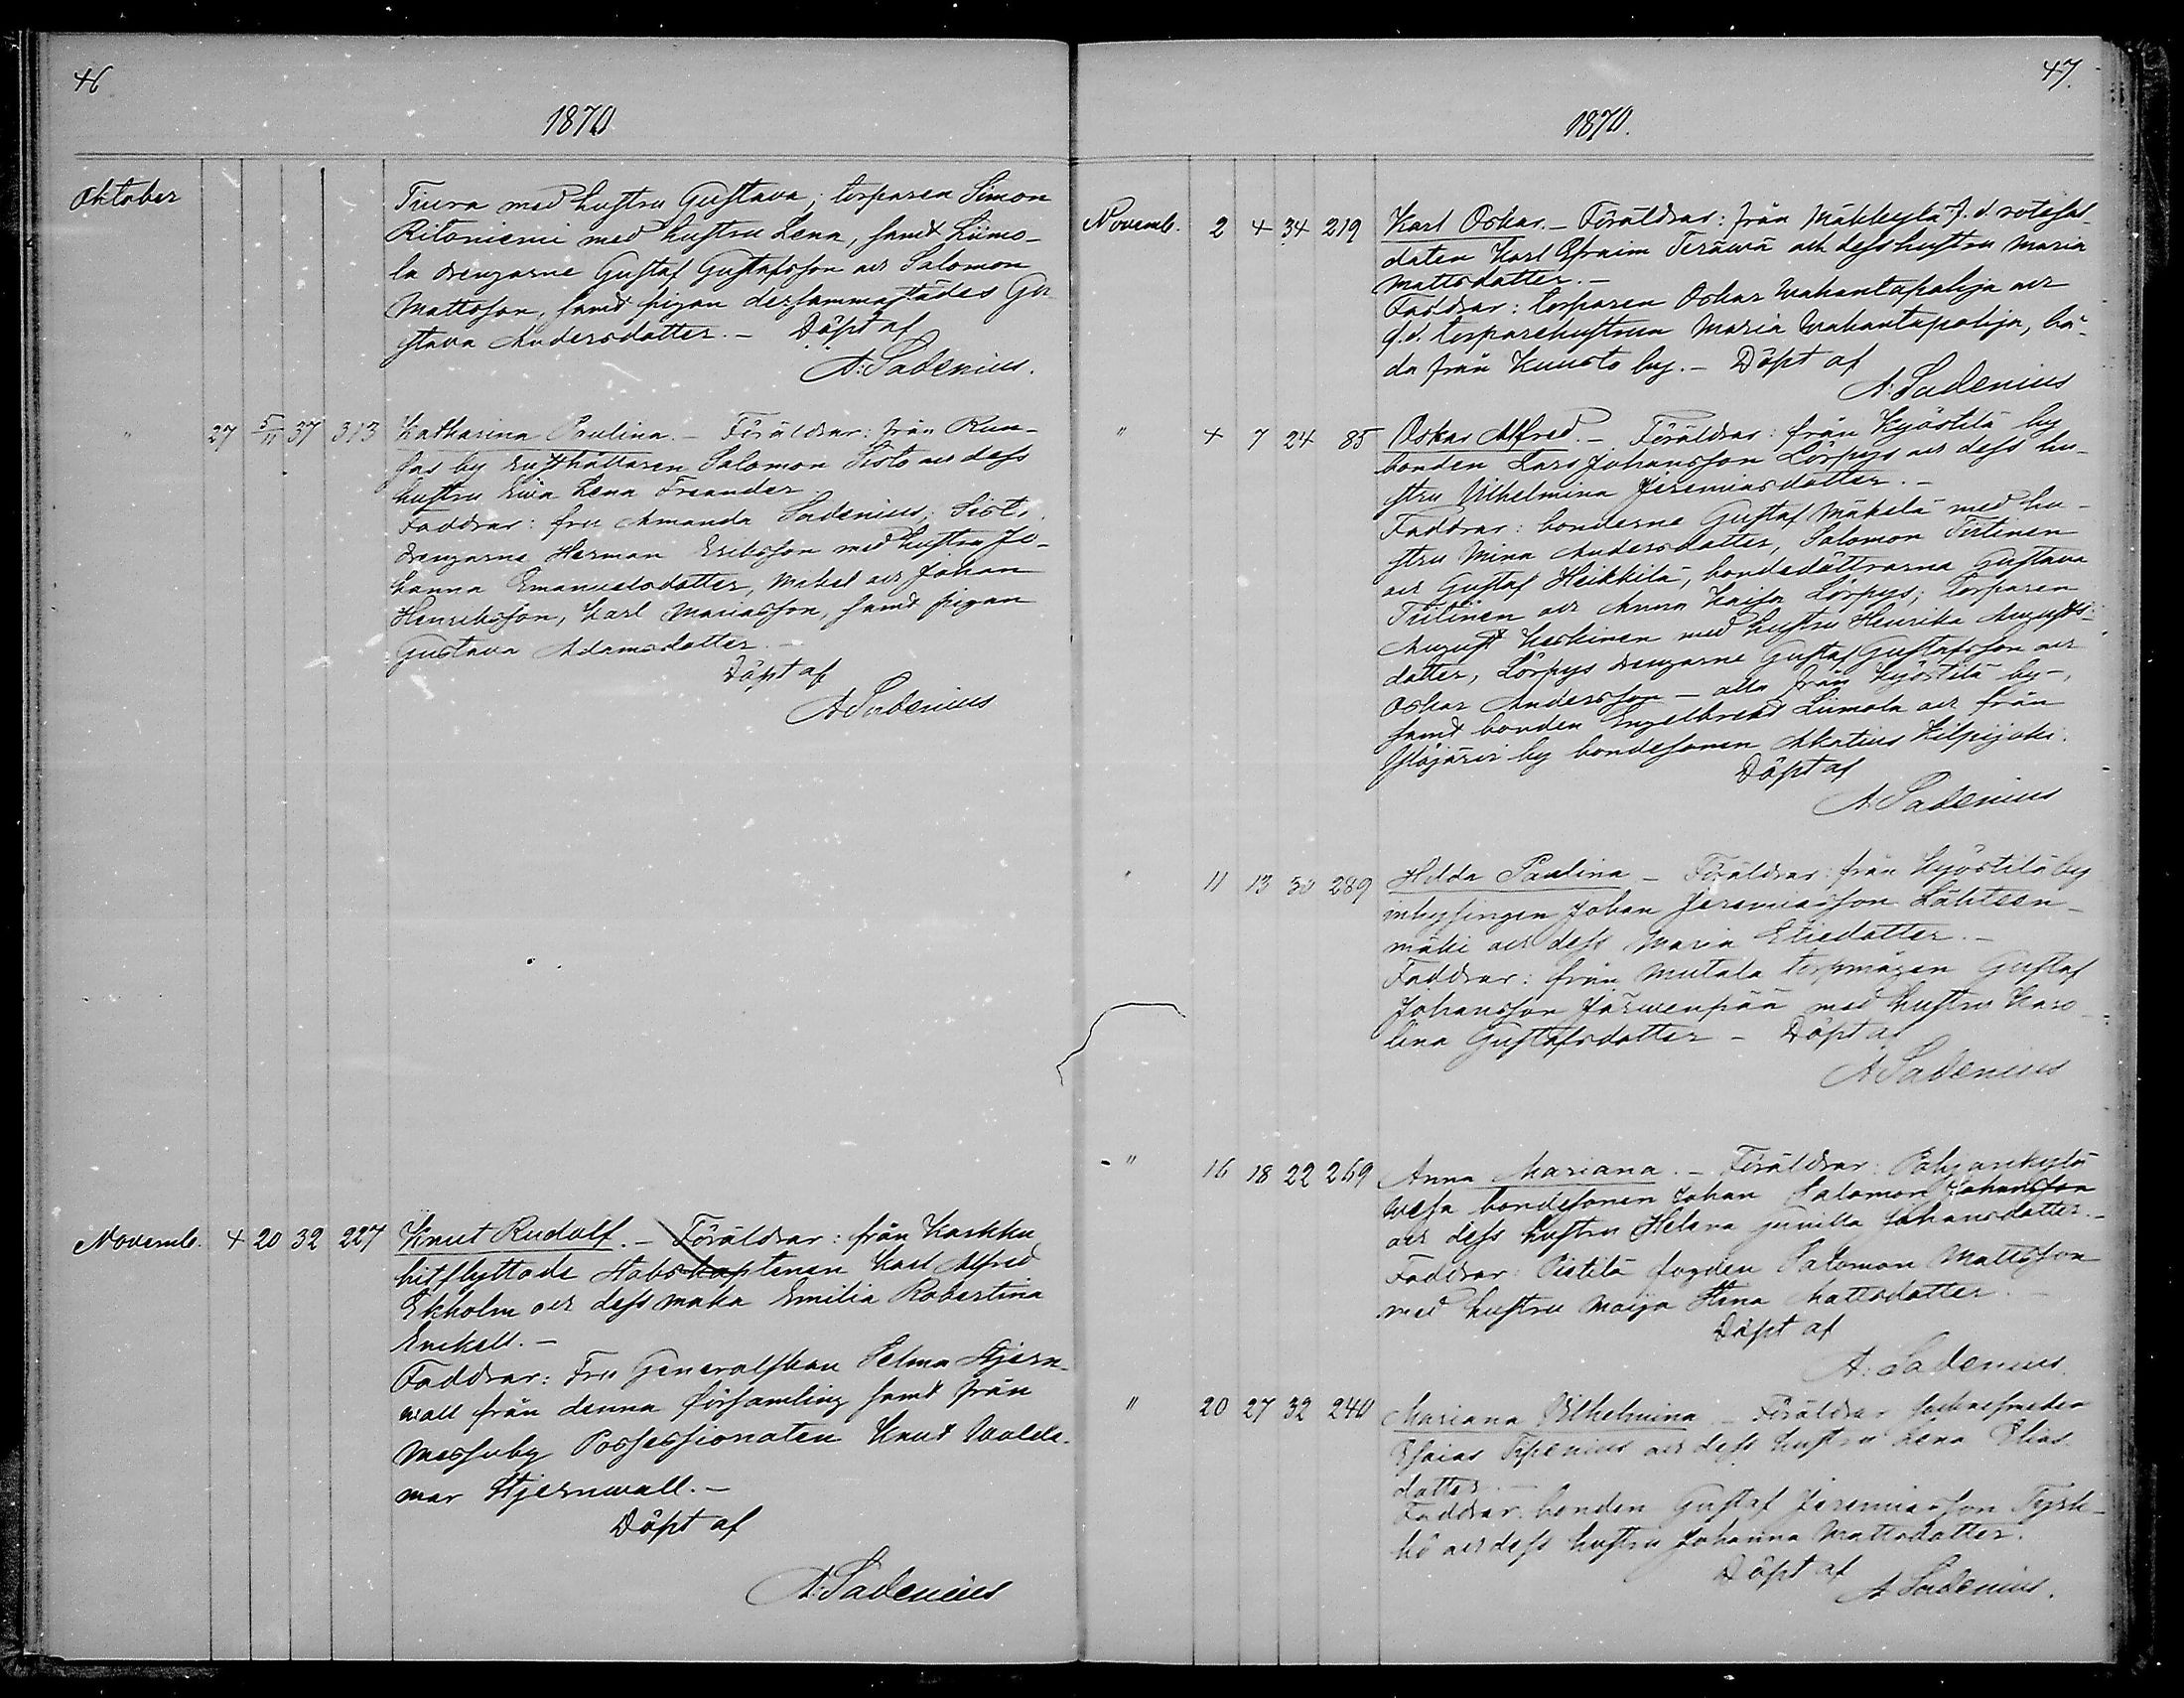 46
1870
Oktober
Tiura med hustru Gustava; torparen Simon
Ritoniemi med hustru Lena, samt Liimo-
la drengarne Gustaf Gustafsson och Salomon
Mattsson, samt pigan dersammastädes Gu-
stava Andersdotter. – Döpt af
A: Sadenius.
" 27 5/11 37 313 Katharina Paulina. – Föräldrar: från Run-
sas by rusthållaren Salomon Sisto och dess
hustru Eva Lena Freander
Faddrar: fru Amanda Sadenius; Sisto
drengarne Herman Eriksson med hustru Jo-
hanna Emanuelsdotter, Mikel och Johan
Henriksson, Karl Mariasson, samt pigan
Gustava Adamsdotter. –
Döpt af
A Sadenius
Novemb. 4 20 32 227 Knut Rudolf. – Föräldrar: från Karkku
hitflyttade Stabskaptenen Karl Alfred
Ekholm och dess maka Emilia Robertina
Enckell. –
Faddrar: Fru Generalskan Selma Stjern-
wall från denna församling samt från
Messuby Possessionaten Knut Wolde-
mar Stjernwall. –
Döpt af
A: Sadenius
47.
1870.
Novemb. 2 4 34 219 Karl Oskar. – Föräldrar: från Mäkkylä f. d. rotesol-
daten Karl Efraim Teräwä och dess hustru Maria
Mattsdotter. –
Faddrar: torparen Oskar Wahantapohja och
f. d. torparehustrun Maria Wahantapohja, bå-
da från Kunsto by. – Döpt af
A: Sadenius
" 4 7 24 85 Oskar Alfred. – Föräldrar: från Kyöstilä by
bonden Lars Johansson Lörpys och dess hu-
stru Vilhelmina Jeremiasdotter. –
Faddrar: bönderne Gustaf Mäkelä med hu-
stru Mina Andersdotter, Salomon Tiitinen
och Gustaf Heikkilä, bondedöttrarna Gustava
Tiitinen och Anna Kaisa Lörpys; torparen
August Keskinen med hustru Henrika Augusts-
dotter, Lörpys drengarne Gustaf Gustafsson och
Oskar Andersson – alla från Kyöstilä by –,
samt bonden Engelbrekt Liimola och från
Ylöjärvi by bondesonen Akatius Kilpijoki.
Döpt af
A: Sadenius
" 11 13 30 289 Hilda Paulina – Föräldrar: från Kyöstilä by
inhysingen Johan Jeremiasson Lähteen-
mäki och dess Maria Eliedotter. –
Faddrar: från Mutala torpmågen Gustaf
Johansson Järwenpää med hustru Karo-
lina Gustafsdotter – Döpt af
A Sadenius
" 16 18 22 269 Anna Mariana. – Föräldrar: Pohjankylä
Wesa bondesonen Johan Salomon Johansson
och dess hustru Helena Gunilla Johansdotter. –
Faddrar: Pietilä fogden Salomon Mattsson
med hustru Maija Stina Mattsdotter. –
Döpt af
A: Sadenius.
" 20 27 32 240 Mariana Vilhelmina. – Föräldrar sockensmeden
Esaias dess hustru Lena Elias-
dotter. –
Faddrar: bonden Gustaf Jeremiasson Tyrk-
kö och dess hustru Johanna Mattsdotter.
Döpt af
A Sadenius.